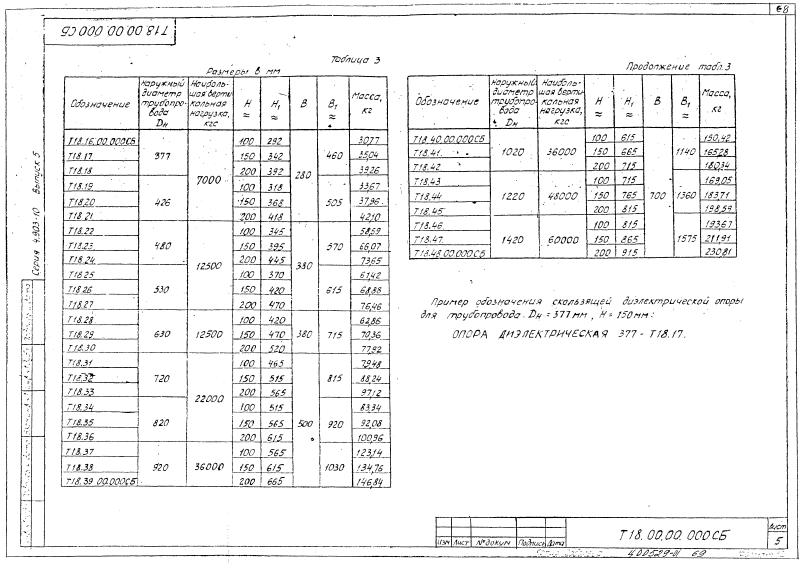 68
Т18.00.00.000СБ
Таблица 3
Размеры в мм
Обозначение | Наружный диаметр трубопровода Dн | Наибольшая вертикальная нагрузка, кгс | H ≈ | H1 ≈ | B | B1 ≈ | Масса, кг
Т18.16.00.000СБ | 377 | 7000 | 100 | 292 | 280 | 460 | 30,77
Т18.17 | 150 | 342 | 35,04
Т18.18 | 200 | 392 | 39,26
Т18.19 | 426 | 100 | 318 | 505 | 33,67
Т18.20 | 150 | 368 | 37,96
Т18.21 | 200 | 418 | 42,10
Т18.22 | 480 | 12500 | 100 | 345 | 380 | 570 | 58,59
Т18.23 | 150 | 395 | 66,07
Т18.24 | 200 | 445 | 73,65
Т18.25 | 530 | 100 | 370 | 615 | 61,42
Т18.26 | 150 | 420 | 68,88
Т18.27 | 200 | 470 | 76,46
Т18.28 | 630 | 12500 | 100 | 420 | 380 | 715 | 62,86
Т18.29 | 150 | 470 | 70,36
Т18.30 | 200 | 520 | 77,92
Т18.31 | 720 | 22000 | 100 | 465 | 500 | 815 | 79,48
Т18.32 | 150 | 515 | 88,24
Т18.33 | 200 | 565 | 97,12
Т18.34 | 820 | 100 | 515 | 920 | 83,34
Т18.35 | 150 | 565 | 92,08
Т18.36 | 200 | 615 | 100,96
Т18.37 | 920 | 36000 | 100 | 565 | 1030 | 123,14
Т18.38 | 150 | 615 | 134,76
Т18.39.00.000СБ | 200 | 665 | 146,84
Продолжение табл. 3
Обозначение | Наружный диаметр трубопровода Dн | Наибольшая вертикальная нагрузка, кгс | H ≈ | H1 ≈ | B | B1 ≈ | Масса, кг
Т18.40.00.000СБ | 1020 | 36000 | 100 | 615 | 700 | 1140 | 150,42
Т18.41. | 150 | 665 | 165,28
Т18.42 | 200 | 715 | 180,34
Т18.43 | 1220 | 48000 | 100 | 715 | 1360 | 169,05
Т18.44 | 150 | 765 | 183,71
Т18.45 | 200 | 815 | 198,59
Т18.46 | 1420 | 60000 | 100 | 815 | 1575 | 193,67
Т18.47. | 150 | 865 | 211,91
Т18.48.00.000СБ | 200 | 915 | 230,81
Пример обозначения скользящей диэлектрической опоры
для трубопровода Dн = 377 мм, H = 150 мм:
ОПОРА ДИЭЛЕКТРИЧЕСКАЯ 377 - Т18.17.
Серия 4.903-10 Выпуск 5
Изм Лист № докум Подпись Дата
Т18.00.00.000СБ
Лист
5
69